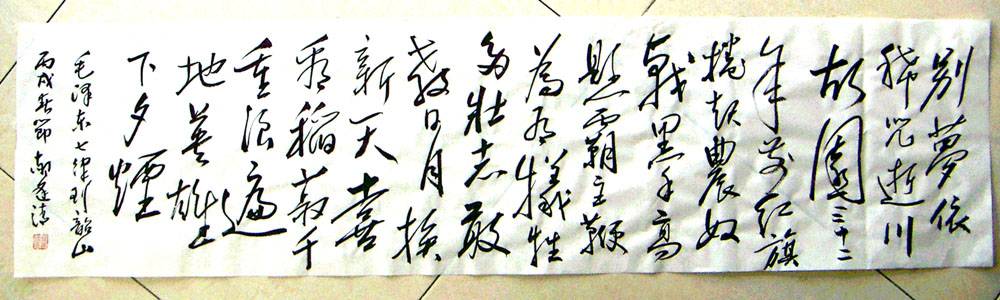 别夢依
稀咒逝川
故園三十二
年前红旗
捲起農奴
戟黑手高
悬霸主鞭
為有犧牲
多壮志敢
教日月换
新天喜
看稻菽千
重浪遍
地英雄
下夕煙
毛泽东七律到韶山
丙戌春節